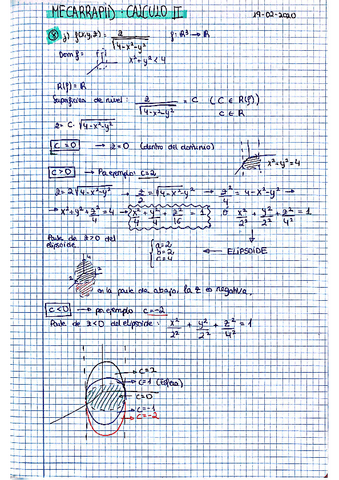 MECARRAPID · CALCULO II 19-02-2020
⑧ j) f(x,y,z) = z / √(4-x²-y²) f: R³ → R
Dom f = x²+y² < 4
R(f) = R
Superficies de nivel: z / √(4-x²-y²) = C (C ∈ R(f))
C ∈ R
z = C · √(4-x²-y²)
C = 0 → z = 0 (dentro del dominio)
x²+y² = 4
C > 0 → Por ejemplo: C = 2
z = 2√(4-x²-y²) → z/2 = √(4-x²-y²) → z²/4 = 4-x²-y² →
→ x²+y²+z²/4 = 4 → x²/4 + y²/4 + z²/16 = 1 o x²/2² + y²/2² + z²/4² = 1
Parte de z>0 del
elipsoide
a=2
b=2
c=4
← ELIPSOIDE
4
2
2
en la parte de abajo, la z es negativa.
C < 0 → por ejemplo C = -2
Parte de z<0 del elipsoide: x²/2² + y²/2² + z²/4² = 1
C=2
C=1 (Esfera)
C=0
C=-1
C=-2